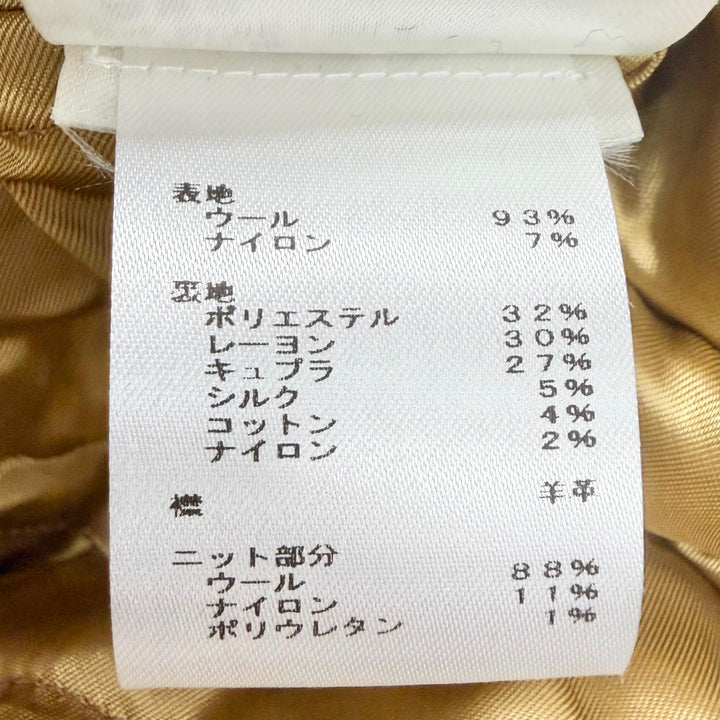 表地
ウール 93%
ナイロン 7%
裏地
ポリエステル 32%
レーヨン 30%
キュプラ 27%
シルク 5%
コットン 4%
ナイロン 2%
襟 羊革
ニット部分
ウール 88%
ナイロン 11%
ポリウレタン 1%